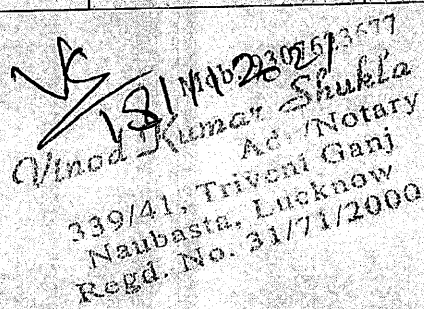 18/11/2021
Vinod Kumar Shukla
Ad. /Notary
339/41, Triveni Ganj
Naubasta, Lucknow
Regd. No. 31/71/2000